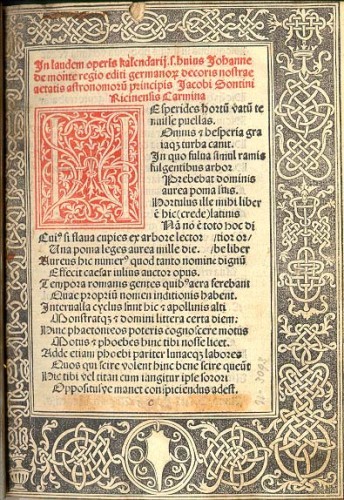 In laudem operis kalendarij .s. huius Johanne
de monte regio editi germanoꝝ decoris nostrae
aetatis astronomorū principis Jacobi Sentini
Ricinensis Carmina
HEsperides hortū vatū te
nuisse puellas.
Omnis ⁊ hesperia gra
iaqꝫ turba canit.
In quo fulua simul ramis
fulgentibus arbor
Prebebat dominis
aurea poma suis.
Hortulus ille mihi liber
ē hic (crede) latinis
Nā nō ē toto hoc di
Cuiꝰ si flaua cupies ex arbore lector (tior or/
Una poma leges aurea mille die. (be liber
Aureus hic numerꝰ quod tanto nomine dignū
Effecit caesar iulius auctor opus.
Tempora romanis gentes quibꝰ aera ferebant
Quae propriū nomen inditionis habent.
Interualla cyclus sunt hic ⁊ apollinis alti
Monstratqꝫ ⁊ domini littera certa diem:
Hinc phaetonteos poteris cognoscere motus
Motus ⁊ phoebes hinc tibi nosse licet.
Adde etiam phoebi pariter lunaeqꝫ labores
Quos qui scire volent hinc bene scire queūt
Hic tibi vel titan cum tangitur ipse sorori
Oppositusve manet conspiciendus adest.